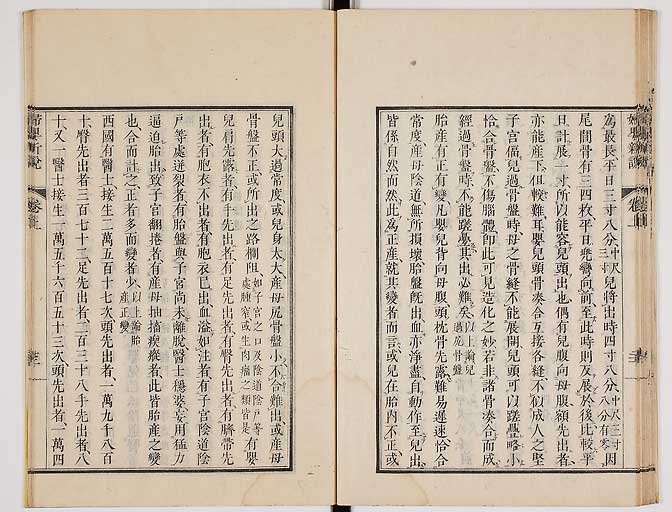 婦嬰新說
為最長平日三寸八分中尺三寸兒將出時四寸八分中尺三寸八分有零因
尾閭骨有三四枚平日兜彎向前至此時則反展於後比較平
日計展一寸所以能容兒頭出也偶有兒腹向母腹額先出者
亦能產下但較難耳嬰兒頭骨湊合互接各縫不似成人之堅
子宮偪兒過骨盤時母之骨經不能展開兒頭可以蹉疊略小
恰合骨盤不傷腦體即此可見造化之妙若非諸骨湊合而成
經過骨盤時不能蹉疊其出必難矣以上論兒過尻骨盤
胎產有正有變凡嬰兒背向母腹頭枕骨先露難易遲速恰合
常度產母陰道無所損壞胎盤既出血亦淨盡自動作至兒出
皆係自然而然此為正產就其變者而言或兒在胎內不正或
兒頭大過常度或兒身太大產母尻骨盤小不合難出或產母
骨盤不正或所出之路攔阻如子宮之口及陰道陰戶等處腫窄或生肉瘤之類皆是有嬰
兒肩先露者有手先出者有足先出者有臀先出者有臍帶先
出者有胞衣不出者有胞衣已出血溢如注者有子宮陰道陰
戶等處迸裂者有胎盤與子宮尚未離脫醫士穩婆妄用猛力
逼迫胎出致子宮翻捲者有產母抽搐瘈瘲者此皆胎產之變
也合而計之正者多而變者少以上論胎產正變
西國有醫士接生二萬五百十七次頭先出者一萬九千八百
十臀先出者三百七十二足先出者二百三十八手先出者八
十又一醫士接生一萬五千六百五十三次頭先出者一萬四
婦嬰新說